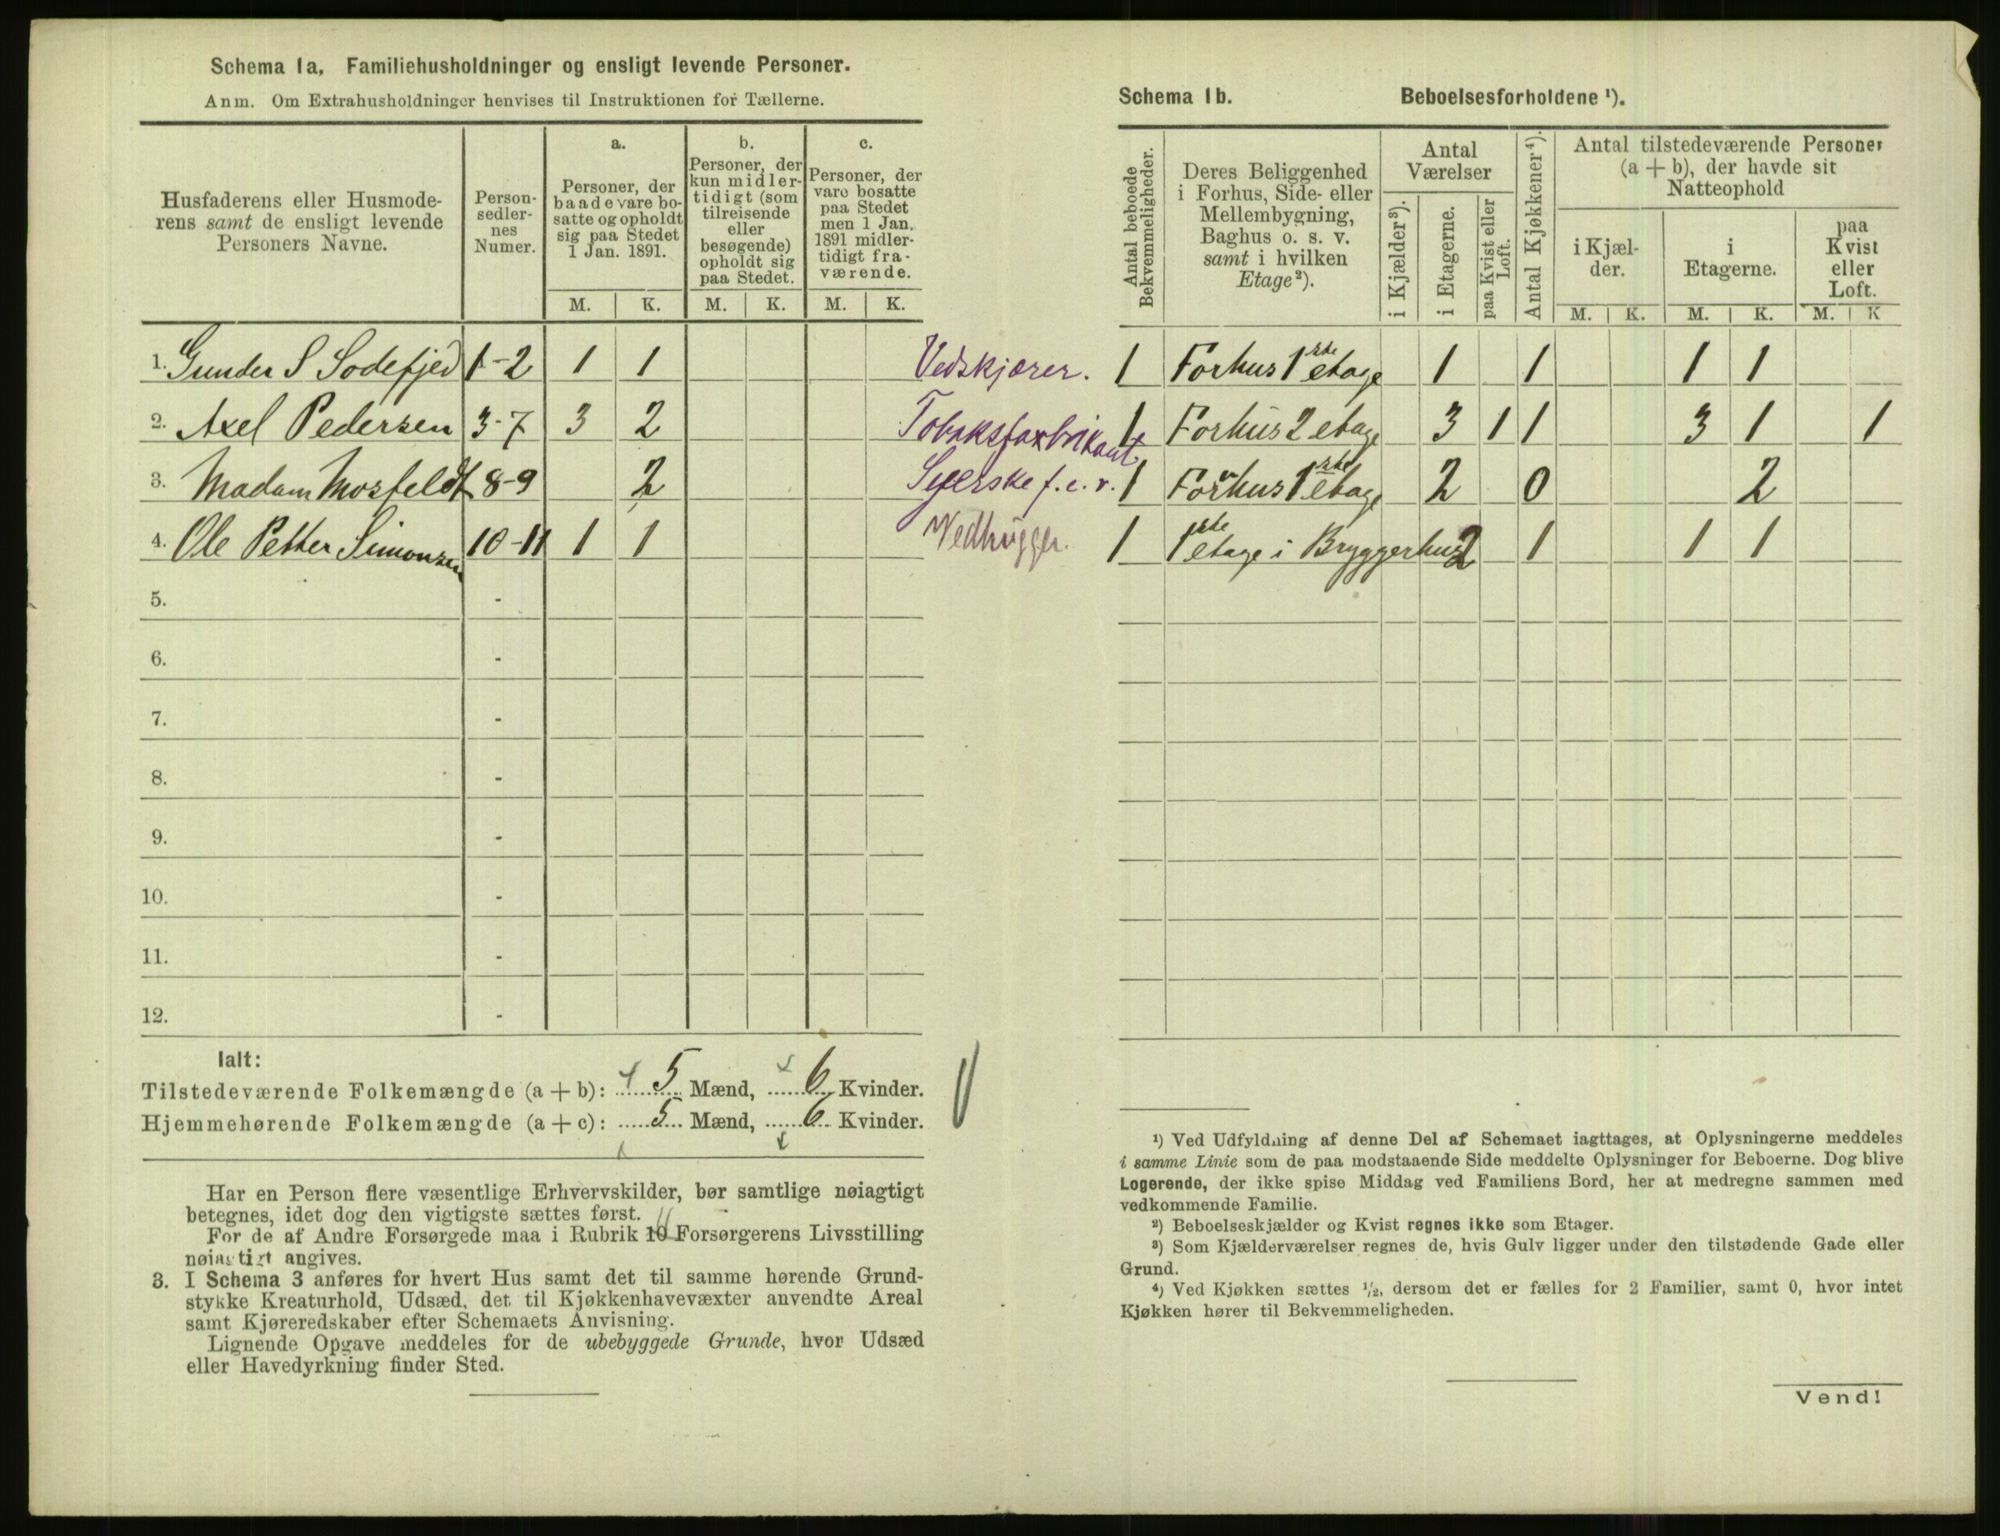 Schema 1a. Familiehusholdninger og ensligt levende Personer.
Anm. Om Extrahusholdninger henvises til Instruktionen for Tællerne.
Husfaderens eller Husmode-
rens samt de ensligt levende
Personers Navne.
Person-
sedler-
nes
Numer.
a.
Personer, der
baade vare bo-
satte og opholdt
sig paa Stedet
1 Jan. 1891.
b.
Personer, der
kun midler-
tidigt (som
tilreisende
eller
besøgende)
opholdt sig
paa Stedet.
c.
Personer, der
vare bosatte
paa Stedet
men 1 Jan.
1891 midler-
tidigt fra-
værende.
M. K. M. K. M. K.
1. Gunder S Sodefjed 1-2 1 1
2. Axel Pedersen 3-7 3 2
3. Madam Mosfeldt 8-9 2
4. Ole Petter Simonsen 10-11 1 1
5. -
6. -
7. -
8. -
9. -
10. -
11. -
12. -
Ialt:
Tilstedeværende Folkemængde (a + b): 5 Mænd, 6 Kvinder.
Hjemmehørende Folkemængde (a + c): 5 Mænd, 6 Kvinder.
Har en Person flere væsentlige Erhvervskilder, bør samtlige nøiagtigt
betegnes, idet dog den vigtigste sættes først.
For de af Andre Forsørgede maa i Rubrik 10 Forsørgerens Livsstilling
nøiagtigt angives.
3. I Schema 3 anføres for hvert Hus samt det til samme hørende Grund-
stykke Kreaturhold, Udsæd, det til Kjøkkenhavevæxter anvendte Areal
samt Kjøreredskaber efter Schemaets Anvisning.
Lignende Opgave meddeles for de ubebyggede Grunde, hvor Udsæd
eller Havedyrkning finder Sted.
Schema 1b. Beboelsesforholdene ¹).
Antal beboede
Bekvemmeligheder.
Deres Beliggenhed
i Forhus, Side- eller
Mellembygning,
Baghus o. s. v.
samt i hvilken
Etage ²).
Antal
Værelser
i Kjælder ³).
i Etagerne.
paa Kvist eller
Loft.
Antal Kjøkkener ⁴).
Antal tilstedeværende Personer
(a + b), der havde sit
Natteophold
i Kjæl-
der.
i
Etagerne.
paa
Kvist
eller
Loft.
M. K. M. K. M. K
Vedskjærer. 1 Forhus 1ste etage 1 1 1 1
Tobaksfabrikant 1 Forhus 2 etage 3 1 1 3 1 1
Syerske f.e.r. 1 Forhus 1ste etage 2 0 2
Vedhugger. 1 1ste etage i Bryggerhus 2 1 1 1
¹) Ved Udfyldning af denne Del af Schemaet iagttages, at Oplysningerne meddeles
i samme Linie som de paa modstaaende Side meddelte Oplysninger for Beboerne. Dog blive
Logerende, der ikke spise Middag ved Familiens Bord, her at medregne sammen med
vedkommende Familie.
²) Beboelseskjælder og Kvist regnes ikke som Etager.
³) Som Kjælderværelser regnes de, hvis Gulv ligger under den tilstødende Gade eller
Grund.
⁴) Ved Kjøkken sættes ½, dersom det er fælles for 2 Familier, samt 0, hvor intet
Kjøkken hører til Bekvemmeligheden.
Vend!